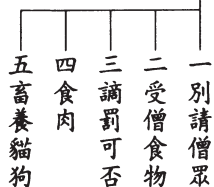 一別請僧眾
二受僧食物
三謫罰可否
四食肉
五畜養貓狗